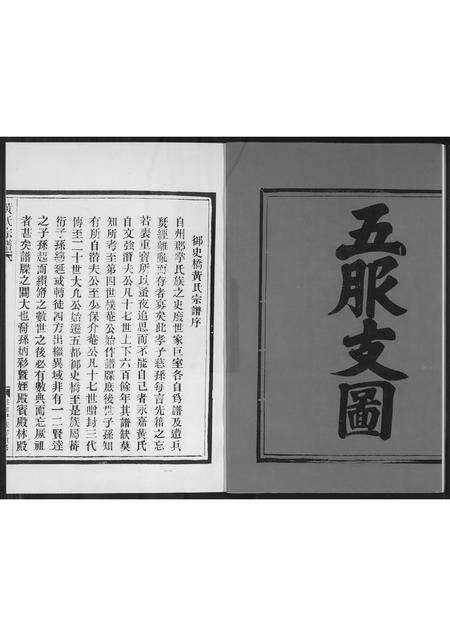 五服支圖
御史橋黃氏宗譜序
自州郡掌氏族之史廢世家巨室各自為譜及遭兵
燹經離亂而存者寡矣此孝子慈孫每言先籍之忘
若喪重寶所以蚤夜追思而不能自己者永嘉黃氏
自文強潛夫公凡十七世上下六百餘年其譜缺莫
知所考至第四世樸菴公始作譜牒庶後性子孫知
有所自潛夫公至少保介菴公凡十七世贈封三代
傳至二十世大九公始遷五都御史橋至是族屬蕃
衍子孫緜延或轉徙四方出繼異域非有一二賢達
之子孫起而續脩之數世之後必有數典而忘厥祖
者甚矣譜牒之關大也裔孫炳彩暨姪殿賓殿林殿
黃氏宗譜